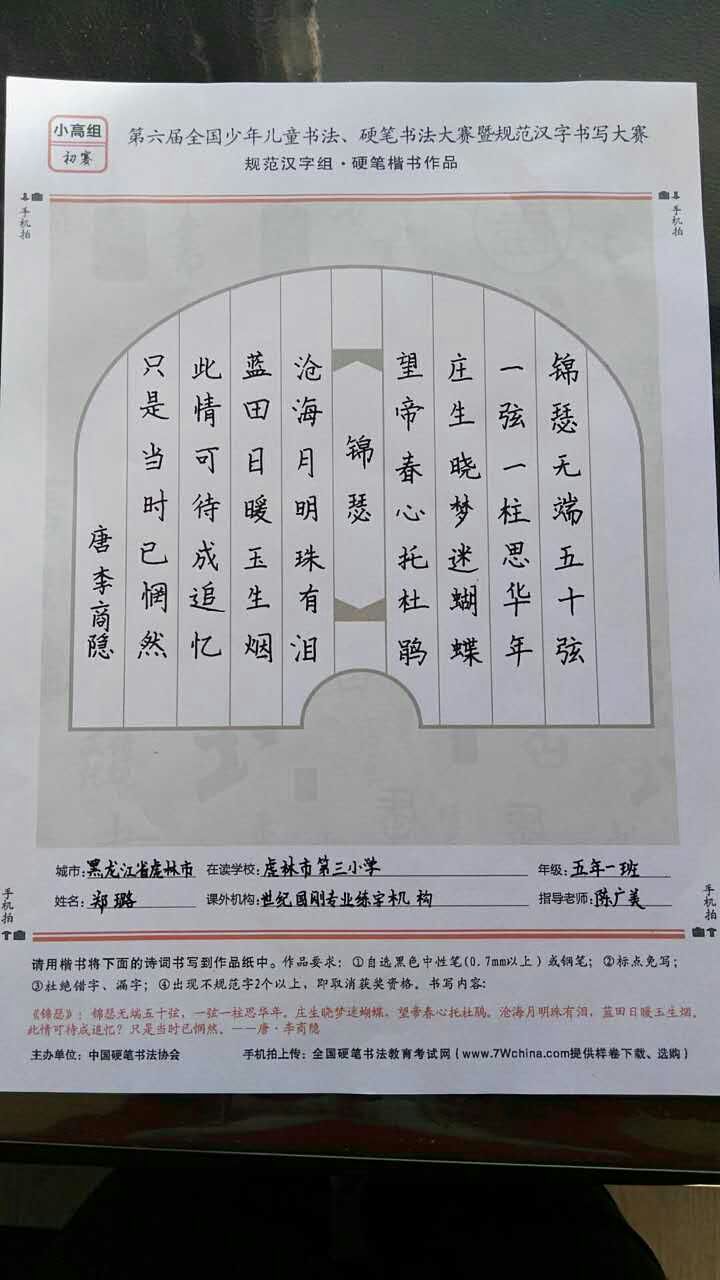 小高组
初赛
第六届全国少年儿童书法、硬笔书法大赛暨规范汉字书写大赛
规范汉字组·硬笔楷书作品
手机拍
手机拍
锦瑟无端五十弦
一弦一柱思华年
庄生晓梦迷蝴蝶
望帝春心托杜鹃
锦瑟
沧海月明珠有泪
蓝田日暖玉生烟
此情可待成追忆
只是当时已惘然
唐李商隐
城市:黑龙江省虎林市 在读学校:虎林市第三小学 年级:五年一班
姓名:郑璐 课外机构:世纪国刚专业练字机构 指导老师:陈广美
手机拍
手机拍
请用楷书将下面的诗词书写到作品纸中。作品要求:①自选黑色中性笔(0.7mm以上)或钢笔;②标点免写;
③杜绝错字、漏字;④出现不规范字2个以上,即取消获奖资格。书写内容:
《锦瑟》:锦瑟无端五十弦,一弦一柱思华年。庄生晓梦迷蝴蝶,望帝春心托杜鹃。沧海月明珠有泪,蓝田日暖玉生烟。
此情可待成追忆?只是当时已惘然。——唐·李商隐
主办单位:中国硬笔书法协会 手机拍上传:全国硬笔书法教育考试网(www.7Wchina.com提供样卷下载、选购)